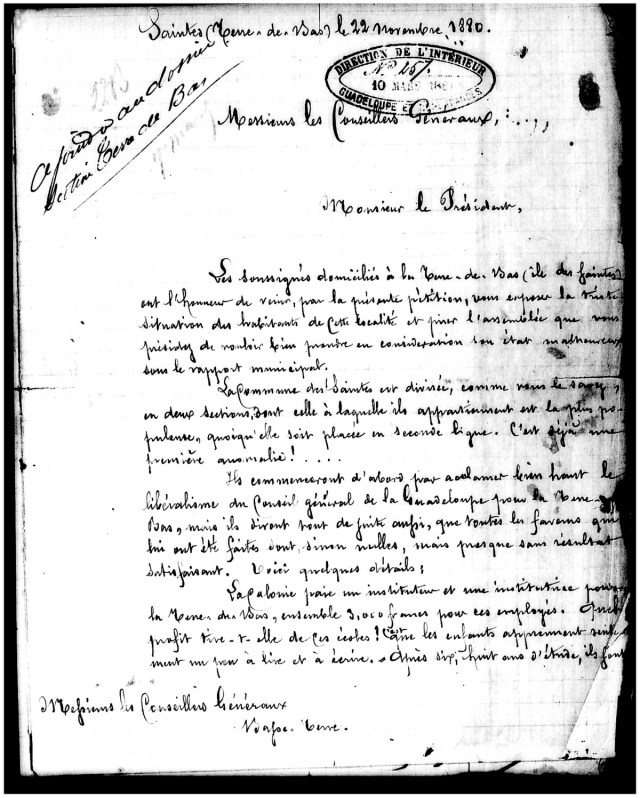 Saintes (Terre-de-Bas) le 22 novembre 1880.
DIRECTION DE L'INTÉRIEUR
10 MARS
GUADELOUPE ET
au dossier
Section Terre de Bas
Messieurs les Conseillers Généraux,
Monsieur le Président,
Les soussignés domiciliés à la Terre-de-Bas (île des Saintes)
ont l'honneur de venir, par la présente pétition, vous exposer la triste
situation des habitants de cette localité et prier l'assemblée que vous
présidez de vouloir bien prendre en considération son état malheureux
sous le rapport municipal.
La Commune des Saintes est divisée, comme vous le savez,
en deux sections, dont celle à laquelle ils appartiennent est la plus po-
puleuse, quoiqu'elle soit placée en seconde ligne. C'est déjà une
première anomalie! . . . .
Ils commenceront d'abord par acclamer bien haut le
libéralisme du Conseil général de la Guadeloupe pour la Terre-de-
Bas, mais ils diront tout de suite aussi, que toutes les faveurs qui
lui ont été faites sont, sinon nulles, mais presque sans résultat
satisfaisant. Voici quelques détails:
La Colonie paie un instituteur et une institutrice pour
la Terre-de-Bas, ensemble 3,000 francs pour ces employés. Quel
profit tire-t-elle de ces écoles? C'est que les enfants apprennent seule-
ment un peu à lire et à écrire. Après six, huit ans d'étude, ils sont
Messieurs les Conseillers Généraux
Basse-Terre.